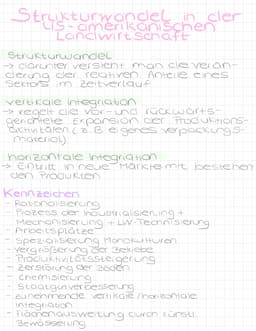 Strukturwandel in der
US-amerikanischen
Landwirtschaft
Strukturwandel
→ darunter versteht man die Verän-
derung der relativen Anteile eines
Sektors im Zeitverlauf
vertikale Integration
→ regelt die vor- und rückwärts-
gerichtete Expansion der Produktions-
aktivitäten (z.B. eigenes Verpackungs-
material)
horizontale Integration
→ Eintritt in neue Märkte mit bestehen
den Produkten
Kennzeichen
- Rationalisierung
- Prozess der Industrialisierung +
Mechanisierung + LW-Technisierung
- Arbeitsplätze
- Spezialisierung Monokulturen
- Vergrößerung der Betriebe
- Produktivitätssteigerung
- Zerstörung der Böden
- Chemisierung
- Saatgutverbesserung
- zunehmende vertikale/horizontale
Integration
- Flächenausweitung durch künstl.
Bewässerung